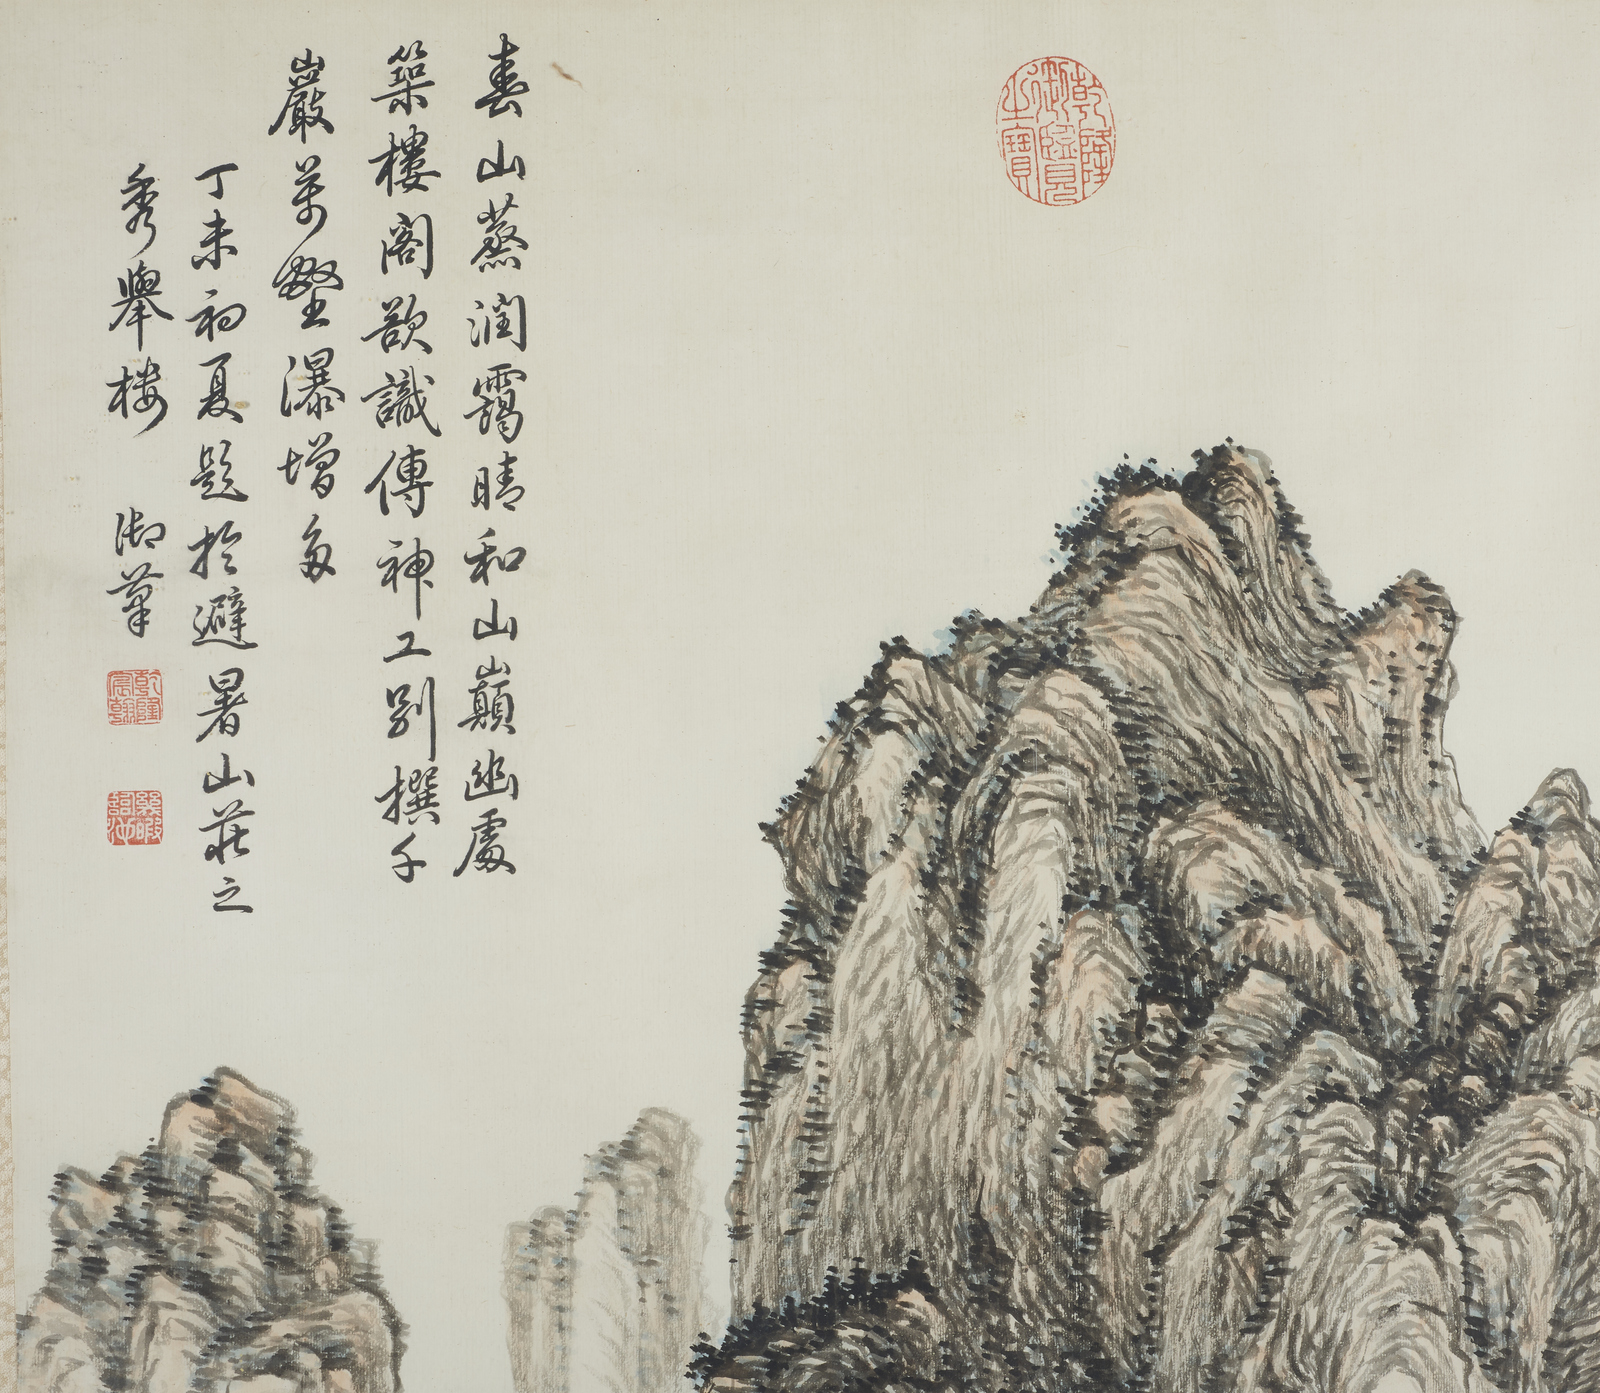 春山蒸潤靄晴和山巔幽處
築樓閣欲識傳神工別撰千
巖萬壑瀑增多
丁未初夏題於避暑山莊之
秀舉楼 御筆
乾隆御覽之寶
乾隆宸翰